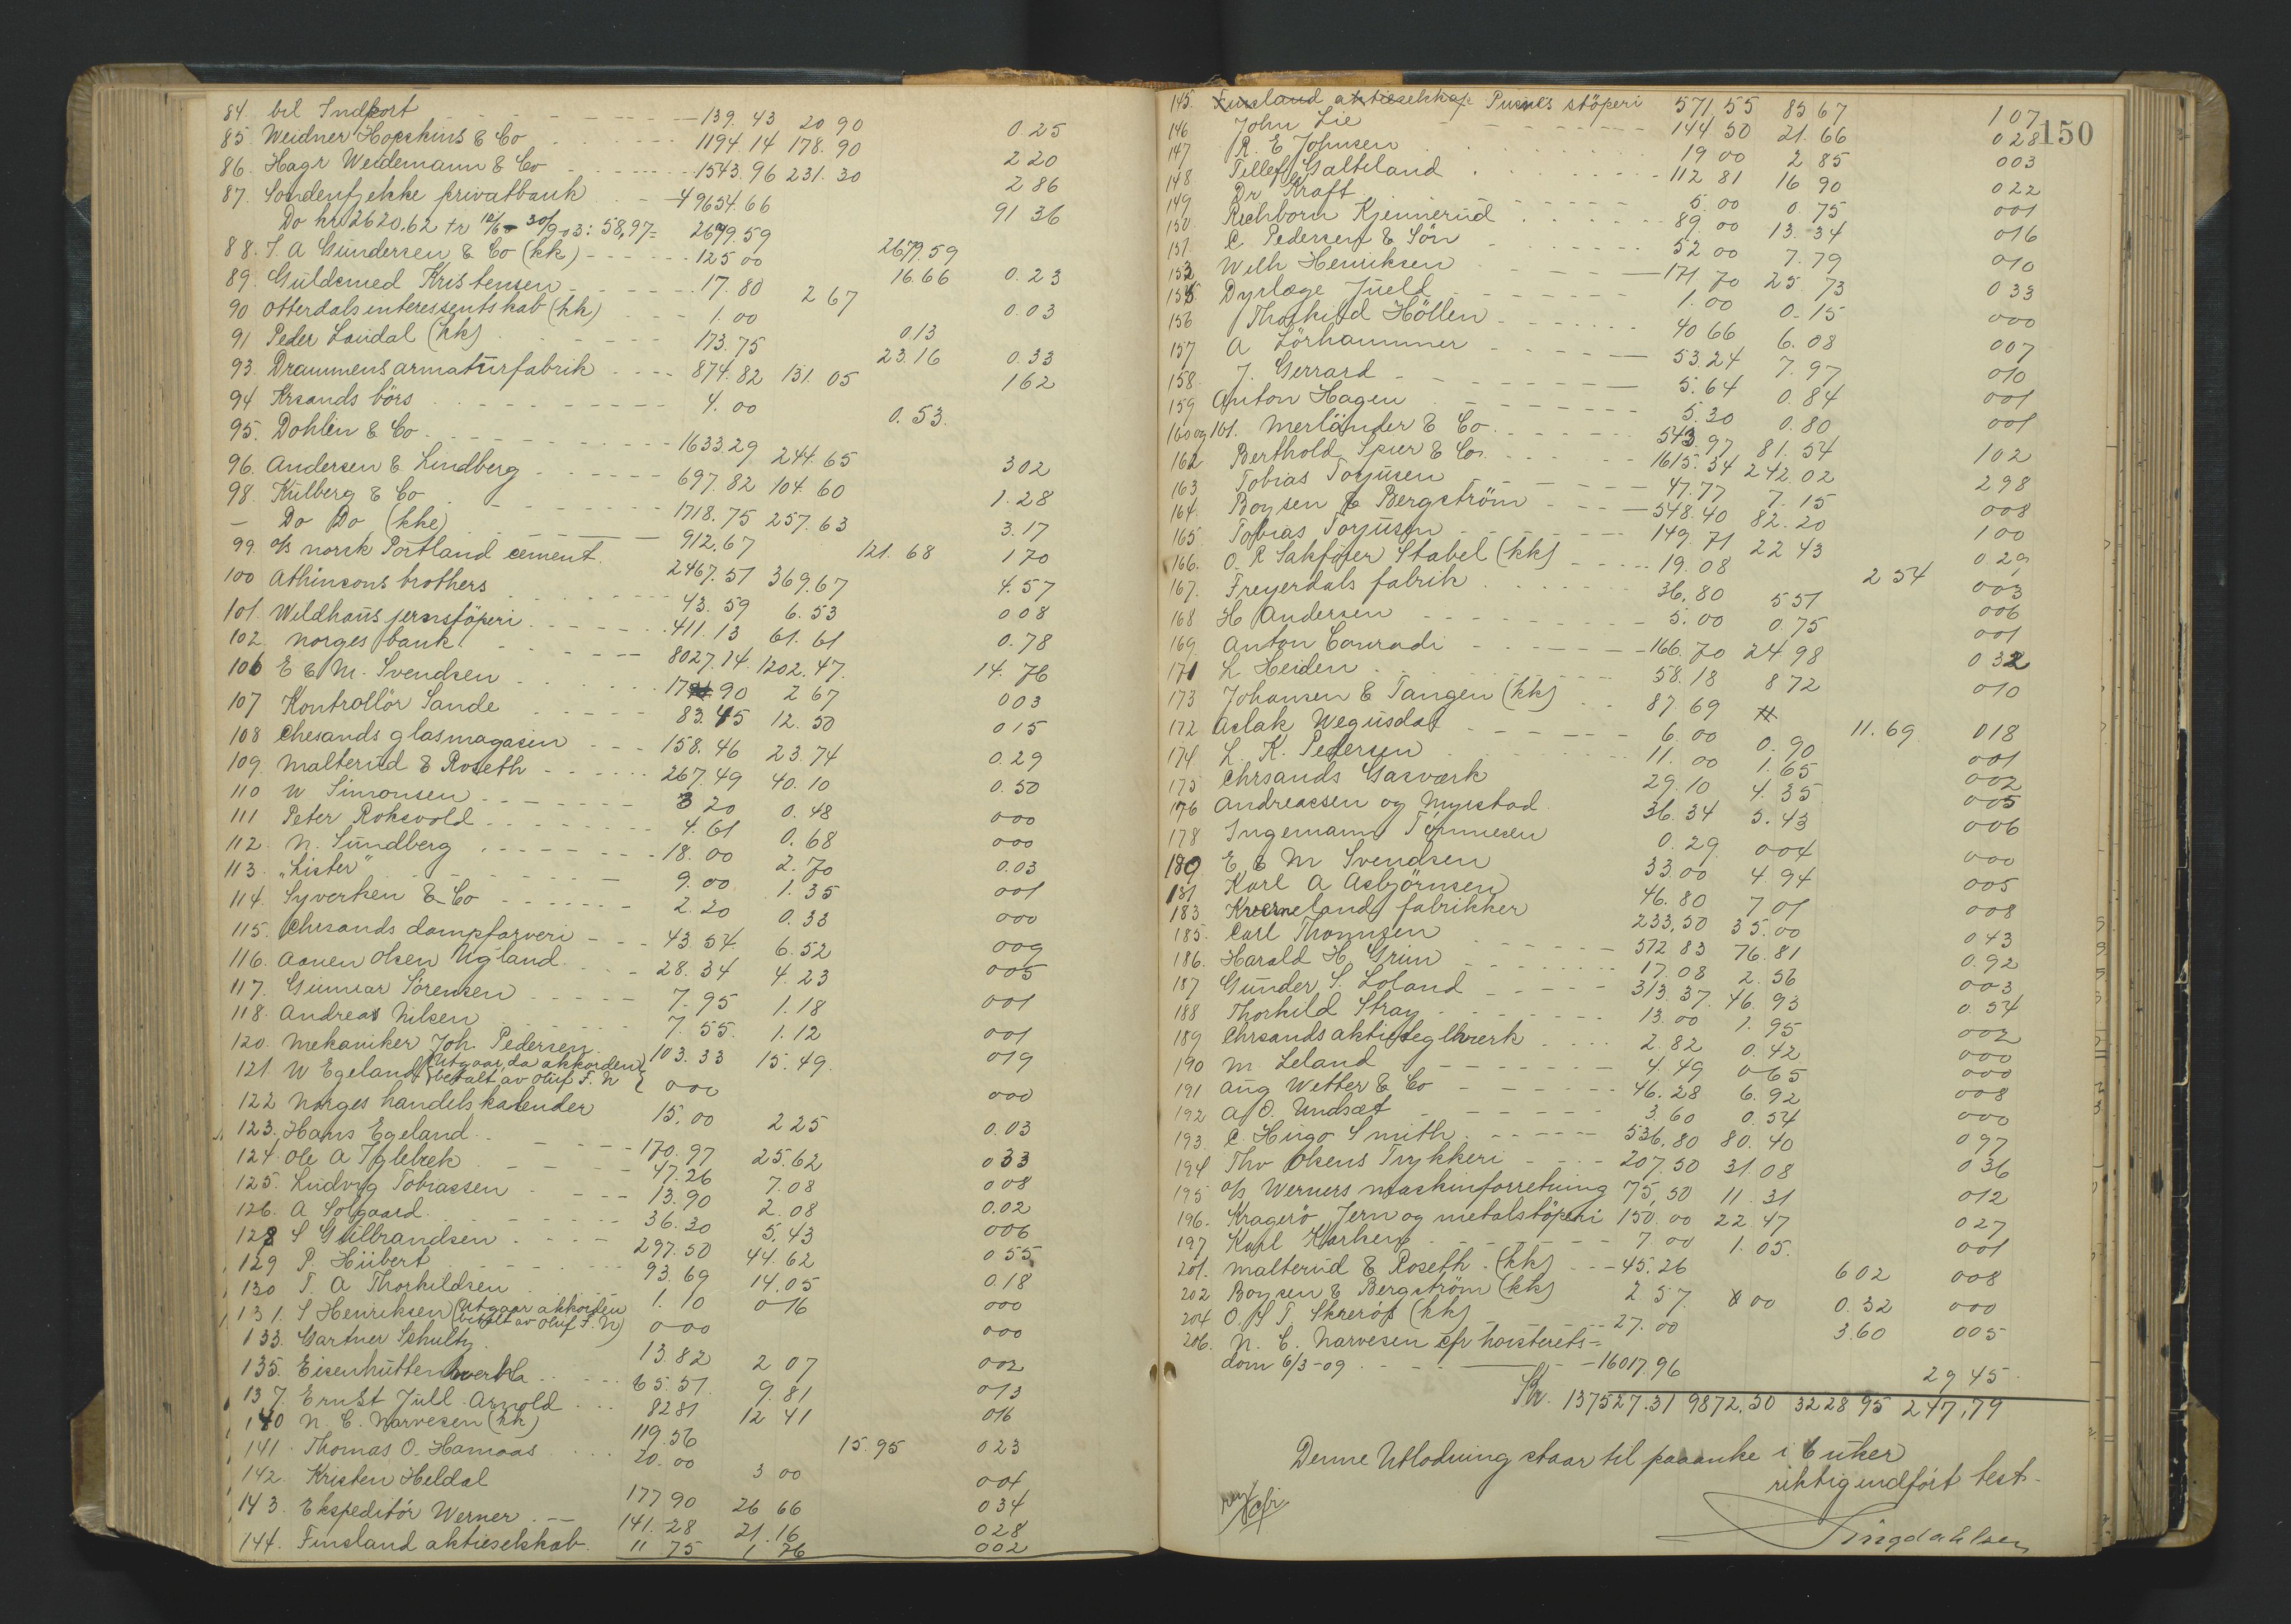 84. bil Indkort 139.43 20 90 0.25
85. Weidner Hopskins & Co 1194.14 178.90 2 20
86. Hagr Weidemann & Co 1543.96 231.30 2 86
87. Sondenfjelske privatbank 49654.66 91 36
Do kr 2620.62 + r 12/6 - 30/9 03: 58,97 = 2679.59 2679.59
88. J. A Gundersen & Co (kk) 125 00 16.66 0.23
89. Guldsmed Kristensen 17.80 2 67 0.03
90 Otterdals interessentskab (kk) 1.00 0.13
91 Peder Loudal (kk) 173.75 23.16 0.33
93. Drammens armaturfabrik 874.82 131.05 162
94 Krsands börs 4.00 0.53.
95. Dohlen & Co 1633.29 244.65 302
96. Andersen & Lindberg 697.82 104.60 1.28
98. Kulberg & Co 1718.75 257.63 3.17
— Do Do (kke) 912.67 121.68 170
99. A/s norsk Portland cement. 2467.51 369.67 4.57
100 Athinsons brothers 43.59 6.53 008
101. Weldhaus jernstöperi 411.13 61.61 0.78
102. Norges bank 8027.14 1202.47. 14.76
106 E & M. Svendsen 17 90 2 67 003
107 Kontrollör Sande 83.45 12.50 015
108 Chrsands glasmagasin 158.46 23.74 0.29
109. Malterud & Roseth 267.49 40.10 0.50
110 W Simonsen 3 20 0.48 000
111 Peter Roksvold 4.61 0.68 000
112. N. Sundberg 18.00 2.70 0.03
113. „Lister" 9.00 1.35 001
114. Syvertsen & Co 2.20 0.33 000
115. Chrsands dampfarveri 43 54. 6.52 009
116. Aanen Olsen Ugland 28.34 4.23 005
117. Gunnar Sörensen 7.95 1.18 001
118. Andreas Nilsen 7.55. 1.12 001
120. Mekaniker Joh. Pedersen 103.33 15.49. 019
121. W Egeland (Utgaar da akkorden betalt av Oluf F. N) 000 000
122 Norges handelskalender 15.00 2 25 0.03
123. Hans Egeland 170.97 25.62 033
124. Ole A Iglebæk 47.26 7.08 008
125. Ludvig Tobiassen 13.90 2.08 0.02
126. A Solgaard 36.30 5.43 006
128 S Gulbrandsen 297.50 44.62 055
129 P. Hübert 93.69 14.05 0.18
130 T. A Thorkildsen 1.10 0 16 000
131. S Henriksen (Utgaar akkorden betalt av Oluf F. N) 000 000
133. Gartner Schultz 13.82 2 07 002
135. Eisenhüttenwerk 65.51. 9.81 013
137. Ernst Jull Arnold 8281 12 41 016
140 N. C. Narvesen (kk) 119.56 15.95 023
141. Thomas O. Hamaas 20.00 3 00 001
142. Kristen Heldal 177 90 26 66 034
143. Ekspeditör Werner 141.28 21.16 028
144. Finsland aktieselskab. 11 75 1 76 002
150
145. Finsland aktieselskap Pusnes stöperi 571.55 85 67 107
146 John Lie 144.50 21.66 028
147 R. E Johnsen 19 00 2 85 003
148 Tellef Galteland 112 81 16 90 022
149 Dr Kraft 5.00 0 75 001
150 Reichborn Kjennerud 89.00 13.34 016
151. C. Pedersen & Sön 52 00 7.79 010
153 Wilh Henriksen 171 70 25 73 033
155. Dyrlæge Jueld 1.00 0.15 000
156 Thorkild Höllen 40 66 6.08 007
157 A Lörhammer 53.24 7.97 010
158. J. Gerrard 5.64 0.84 001
159 Anton Hagen 5.30 0.80 001
160 og 161. Merländer & Co 543.97 81.54 102
162 Berthold Spier & Co. 1615.34 242.02 298
163 Tobias Torjusen 47.77 7.15 008
164. Boysen & Bergström 548.40 82.20 100
165. Tobias Torjusen 149.71 22 43 0.29
166. O. R Sakförer Stabel (kk) 19.08 2 54 003
167. Freyerdals fabrik 36.80 5 51 006
168 H Andersen 5.00 0.75 001
169. Anton Conradi 166.70 24.98 032
171 L Heiden 58.18 8 72 010
173 Johansen & Tangen (kk) 87.69 11.69 018
172 Aslak Wegusdal 6.00 0.90 001
174. L. K. Pedersen 11.00 1.65 002
175 Chrsands Gasværk 29.10 4.35 005
176 Andreassen og Myrstad. 36.34 5.43 006
178 Ingemann Tönnesen 0.29 004 000
180 E & M Svendsen 33.00 4.94 005
181 Karl A Asbjörnsen 46.80 7 01 008
183 Kvernelands fabrikker 233.50 35.00 043
185. Carl Thomsen 512 83 76.81 0.92
186. Harald H. Grim 17.08 2.56 003
187 Gunder S. Loland 313.37. 46.93 0.54
188 Thorkild Stray 13.00 1.95 002
189 Chrsands aktieteglverk 2.82 0.42 000
190 M. Leland 4.49 065 000
191 Aug Wetter & Co 46.28 6.92 008
192 A. O. Undsæt 3.60 0.54 000
193. C. Hugo Smith 536.80 80.40 097
194 Thv Olsens Trykkeri 207.50 31.08 036
195 A/s Werners maskinforretning 75.50 11.31 012
196. Kragerö Jern og metalstöperi 150.00 22.47 027
197 Karl Karlsen 7.00 1.05. 001
201. Malterud & Roseth (kk) 45.26 602 008
202 Boysen & Bergström (kk) 2 57. 00 0.32 000
204 O. S T. Skreros (kk) 27.00 3.60 005
206. N. C. Narvesen cfr hoiesterets=
dom 6/3-09 16017.96 29 45.
Kr. 137527.31 9872.50 3228 95 247.79
Denne Utlodning staar til paaanke i 6 uker
riktig indfört test.
Lingdahlsen